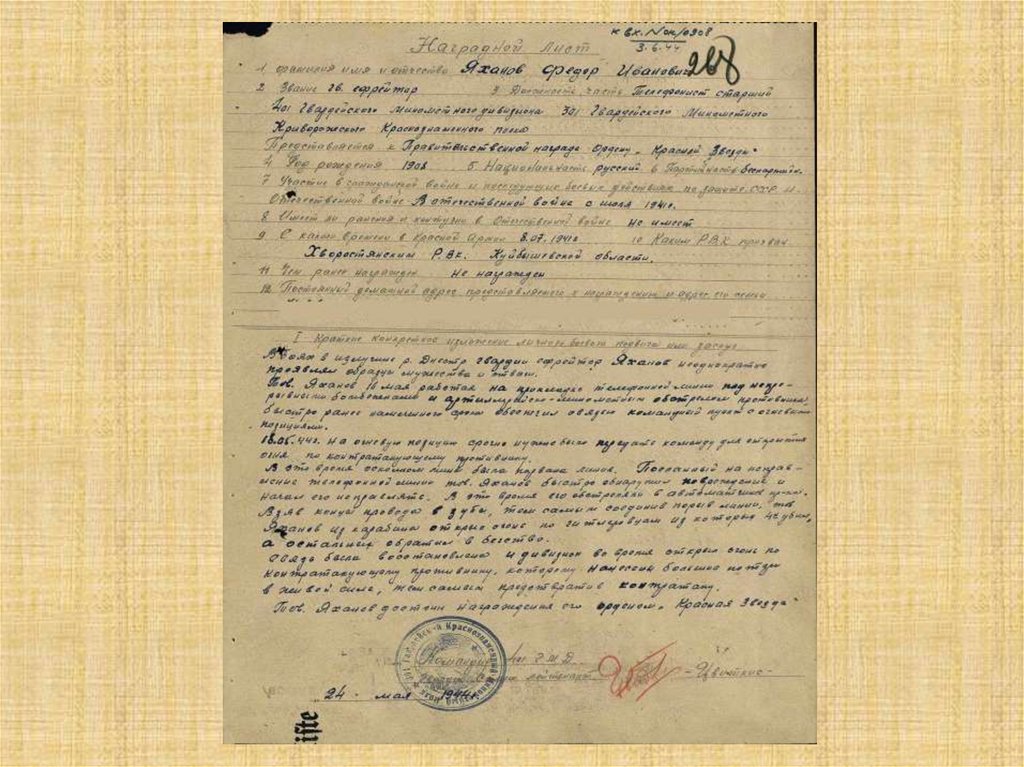 к вх. № ок/0908
3.6.44
Наградной лист
268
1. Фамилия имя и отчество Яханов Федор Иванович
2. Звание гв. ефрейтор 3 Должность, часть Телефонист старший
401 Гвардейского Минометного дивизиона 301 Гвардейского Минометного
Криворожского Краснознаменного полка
Представляется к Правительственной награде ордену „Красной Звезды"
4. Год рождения 1908 5. Национальность русский 6 Партийность беспартийн.
7 Участие в гражданской войне и последующих боевых действиях по защите СССР и
Отечественной войне В отечественной войне с июля 1941г.
8. Имеет ли ранения и контузии в Отечественной войне не имеет
9. С какого времени в Красной Армии 8.07.1941г 10 Каким Р.В.К. призван
Хворостянским Р.Вк. Куйбышевской области.
11. Чем ранее награжден не награжден
12. Постоянный домашний адрес представляемого к награждению и адрес его семьи
I Краткое конкретное изложение личного боевого подвига или заслуг
В боях в излучине р. Днестр гвардии ефрейтор Яханов неоднократно
проявлял образцы мужества и отваги.
Тов. Яханов 10 мая работая на прокладке телефонной линии под непре-
рывными бомбежками и артиллерийско-минометным обстрелом противника
быстро ранее намеченного срока обеспечил связью командный пункт с огневыми
позициями.
18.05.44г. на огневую позицию срочно нужно было передать команду для открытия
огня по контратакующему противнику.
В это время осколком мины была порвана линия. Посланный на исправ-
ление телефонной линии тов. Яханов быстро обнаружил повреждение и
начал его исправлять. В это время его обстреляли автоматчики
Взяв концы провода в зубы, тем самым соединив порыв линии, тов
Яханов из карабина открыл огонь по гитлеровцам из которых 4х убил,
а остальных обратил в бегство.
Связь была восстановлена и дивизион во время открыл огонь по
контратакующему противнику, которому нанесены большие потери
в живой силе, тем самым предотвратив контратаку.
Тов. Яханов достоин награждения его орденом „Красная Звезда"
Командир 401 Г.М.Д.
гвардии лейтенант -Цвиткис-
24 - мая 1944г.